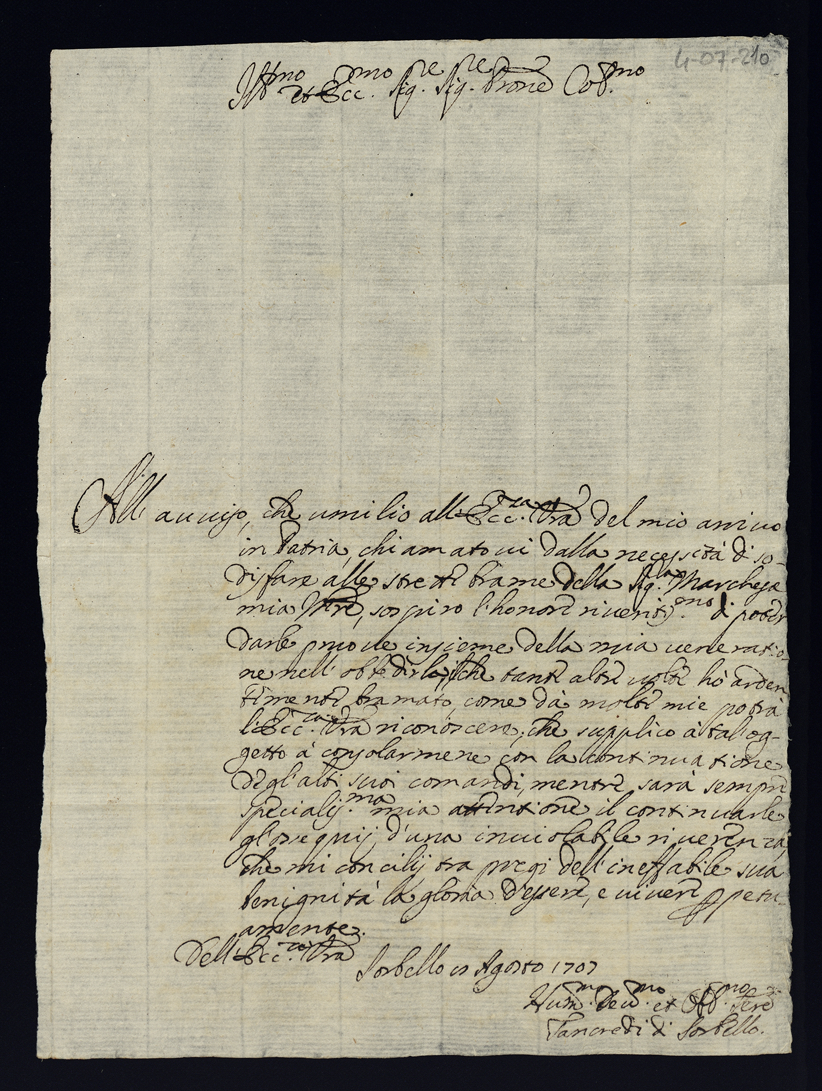 4-07-210
Ill.mo et Ecc.mo Sig.re Sig.re Prone Col.mo
All'auuiso, che umilio all'Ecc.za Vra del mio arriuo
in Patria, chiamatoui dalla necessità di so-
disfare alle strette brame della Sig.ra Marchesa
mia Mre, sospiro l'honore riuerit.mo di poter
darle proue insieme della mia veneratio-
ne nell'obedirla, che tante altre uolte hò arden
temente bramato, come dà molte mie potrà
l'Ecc.za Vra riconoscere, che supplico à tal og-
getto à consolarmene con la continuatione
degl'alti suoi comandi, mentre sarà sempre
specialis.ma mia attentione il continuarle
gl'ossequij d'una inuiolabile riuerenza,
che mi concilij tra pregi dell'ineffabile sua
benignità la gloria d'essere, e uiuere ppetu-
amente.
Dell'Ecc.za Vra
Sorbello Agosto 1707
Hum.mo Deu.mo et Obl.mo Sere
Tancredi di Sorbello.